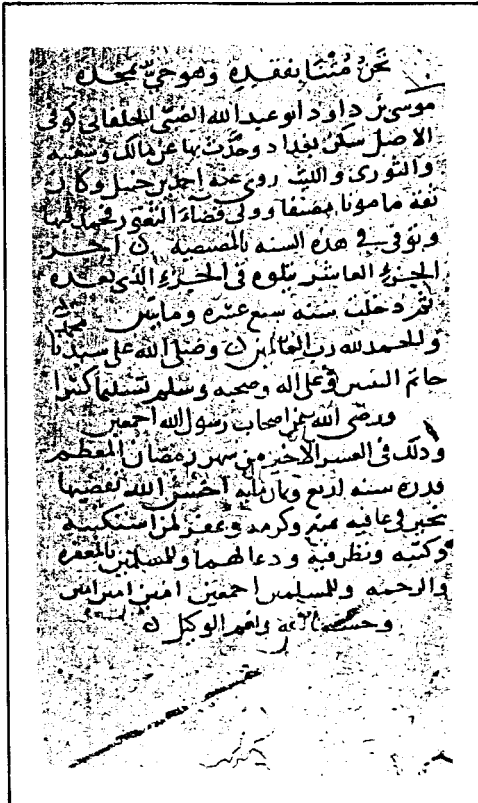 نحن متنا بفقده وهو حي بمجده
موسى بن داود ابو عبد الله الضبي الخلقاني كوفي
الاصل سكن بغداد وحدث بها عن مالك وشعبة
والثوري والليث روى عنه احمد بن حنبل وكان
ثقة مامونا مصنفا وولي قضاء الثغور فحمد فيها
وتوفي في هذه السنه بالمصيصه ن اخر
الجزء العاشر يتلوه في الجزء الذي بعده
ثم دخلت سنه سبع عشره ومايتين
والحمد لله رب العالمين ن وصلى الله على سيدنا
خاتم النبيين وعلى اله وصحبه وسلم تسليما كثيرا
ورضي الله عن اصحاب رسول الله اجمعين
وذلك في العشر الاخير من شهر رمضان المعظم
قدره سنه اربع وثمان مايه احسن الله تقضيها
بخير في عافيه بمنه وكرمه وغفر لمن استكتبه
وكتبه ونظر فيه ودعا لهما وللمسلمين بالمغفره
والرحمه وللمسلمين اجمعين امين امين امين
وحسبنا الله ونعم الوكيل ن